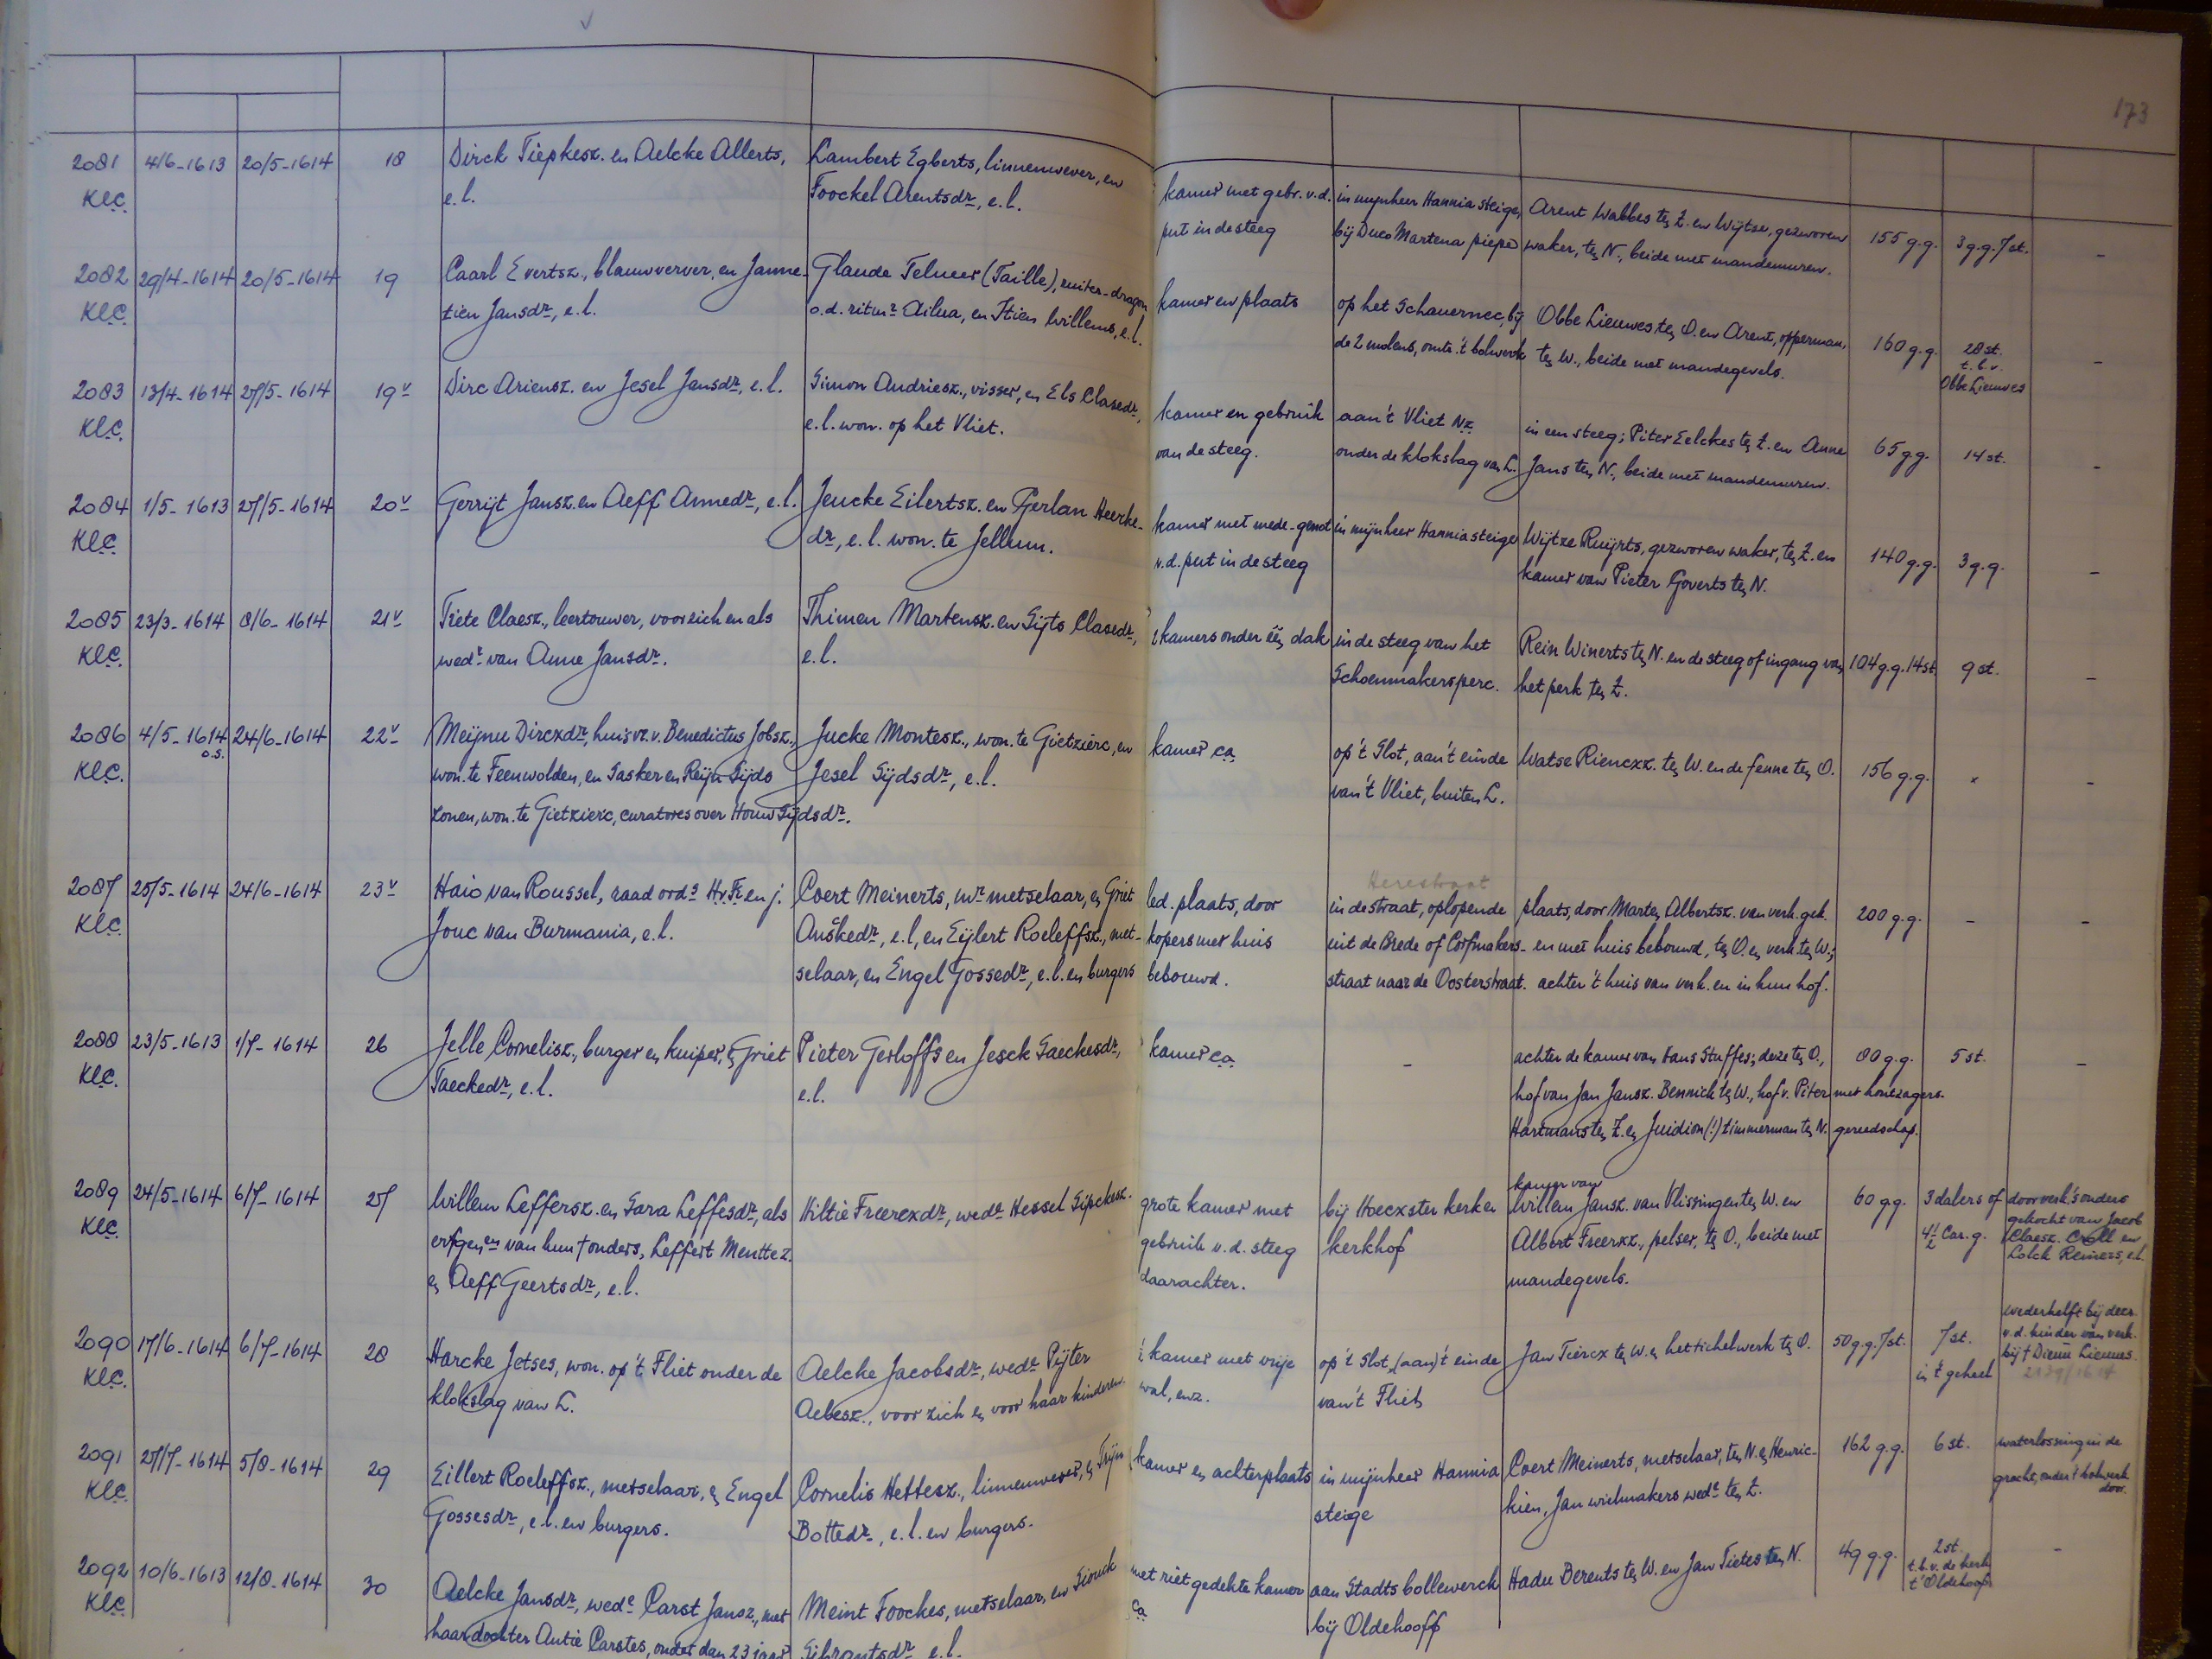 173
2081 4/6-1613 20/5-1614 18 Dirck Tiepkesz. en Aelcke Allerts, Lambert Egberts, linnenwever, en kamer met gebr. v.d. in mijnheer Hannia steige, Arent Wabbes ten Z. en Wijtse, gezworen 155 g.g. 3 g.g. 7 st. -
Kl.C. e.l. Foockel Arentsdr, e.l. put in de steeg bij Duco Martena piepe waker, ten N., beide met mandemuren.
2082 29/4-1614 20/5-1614 19 Caarl Evertsz., blauwverver, en Janne- Glaude Telmer (Taille), ruiter-dragon kamer en plaats op het Schauernec, bij Obbe Lieuwes ten O. en Arent, opperman, 160 g.g. 28 st. -
Kl.C. tien Jansdr, e.l. o.d. ritmr Ailua, en Itien Willems, e.l. de 2 molens, omtr. 't bolwerk ten W., beide met mandegevels. t.b.v.
Obbe Lieuwes
2083 13/4-1614 27/5-1614 19v Dirc Ariensz. en Jesel Jansdr, e.l. Simon Andriesz., visser, en Els Clasedr, kamer en gebruik aan 't Vliet Nz in een steeg; Piter Eelckes ten Z. en Anne 65 g.g. 14 st. -
Kl.C. e.l. won. op het Vliet. van de steeg. onder de klokslag van L. Jans ten N., beide met mandemuren.
2084 1/5-1613 27/5-1614 20v Gerrijt Jansz. en Aeff Annedr, e.l. Jencke Eilertsz. en Tjerlan Heerke- kamer met mede-genot in mijnheer Hannia steige Wijtze Ruijrts, gezworen waker, ten Z. en 140 g.g. 3 g.g. -
Kl.C. dr, e.l. won. te Jellum. v.d. put in de steeg kamer van Pieter Goverts ten N.
2085 23/3-1614 8/6-1614 21v Tiete Claesz., leertouwer, voor zich en als Thimen Martensz. en Sijts Clasedr, kamers onder één dak in de steeg van het Rein Winerts ten N. en de steeg of ingang van 104 g.g. 14 st. 9 st. -
Kl.C. wedr van Anne Jansdr. e.l. Schoenmakersperc. het perk ten Z.
2086 4/5-1614 24/6-1614 22v Meijnu Dircxdr, huisvr. v. Benedictus Jobsz., Jucke Montesz., won. te Gietzierc, en kamer ca op 't Slot, aan 't einde Watse Riencxz. ten W. en de fenne ten O. 156 g.g. -
o.s.
Kl.C. won. te Feenwolden, en Sasker en Reijn Sijds Jesel Sijdsdr, e.l. van 't Vliet, buiten L.
zonen, won. te Gietzierc, curatores over Houw Sijdsdr.
Herestraat
2087 25/5-1614 24/6-1614 23v Haio van Roussel, raad ords HvFr en j. Coert Meinerts, mr metselaar, en Griet led. plaats, door in de straat, oplopende plaats, door Marten Albertsz. van verk. gek. 200 g.g. - -
Kl.C. Jouc van Burmania, e.l. Anskedr, e.l., en Eijlert Roeleffsz., met- kopers met huis uit de Brede of Corfmakers- en met huis bebouwd, ten O. en verk. ten W.;
selaar, en Engel Gossedr, e.l. en burgers bebouwd. straat naar de Oosterstraat. achter 't huis van verk. en in hun hof.
2088 23/5-1613 1/7-1614 26 Jelle Cornelisz., burger en kuiper, en Griet Pieter Gerloffs en Jesck Saechesdr, kamer ca - achter de kamer van Hans Stuffes; deze ten O., 80 g.g. 5 st. -
Kl.C. Taeckedr, e.l. e.l. hof van Jan Jansz. Bennick ten W., hof v. Piter met houtzagers-
Hartmans ten Z. en Juidion (!) timmerman ten N. gereedschap.
kamer van
2089 24/5-1614 6/7-1614 27 Willem Leffersz. en Sara Leffesdr, als Hiltie Freercxdr, wede Hessel Sipckesz. grote kamer met bij Hoecxster kerk en Willem Jansz. van Vlissingen ten W. en 60 g.g. 3 dalers of door verk.'s ouders
Kl.C. erfgenen van hun † ouders, Leffert Menttez. gebruik v.d. steeg kerkhof Albert Freerxz., pelser, ten O., beide met 4½ Car. g. gekocht van Jacob
en Aeff Geertsdr, e.l. daarachter. mandegevels. Claesz. Croll en
Lolck Reiners, e.l.
2090 17/6-1614 6/7-1614 28 Harcke Jetses, won. op 't Fliet onder de Aelcke Jacobsdr, wede Pijter ½ kamer met vrije op 't Slot, (aan) 't einde Jan Tiercx ten W. en het tichelwerk ten O. 50 g.g. 7 st. 7 st. wederhelft bij deer-
Kl.C. klokslag van L. Aebesz., voor zich en voor haar kinderen. wal, enz. van 't Fliet in 't geheel v.d. kinder van verk.
bij † Dieuw Lieuwes.
2091 27/7-1614 5/8-1614 29 Eillert Roeleffsz., metselaar, en Engel Cornelis Hettesz., linnenwever, en Trijn kamer en achterplaats in mijnheer Hannia Coert Meinerts, metselaar, ten N. en Henric- 162 g.g. 6 st. waterlossing in de
Kl.C. Gossesdr, e.l. en burgers. Bottedr, e.l. en burgers. steige kien, Jan wielmakers wede ten Z. gracht, onder 't bolwerk
door.
2092 10/6-1613 12/8-1614 30 Aelcke Jansdr, wede Carst Jansz., met Meint Foockes, metselaar, en Siouck met riet gedekte kamer aan Stadts bollewerck Hadu Berents ten W. en Jan Tietes ten N. 49 g.g. 2 st. -
Kl.C. haar dochter Antie Carstes, ouder dan 23 jaar Sibrantsdr e.l. ca bij Oldehooff t.b.v. de kerk
t' Oldehoof